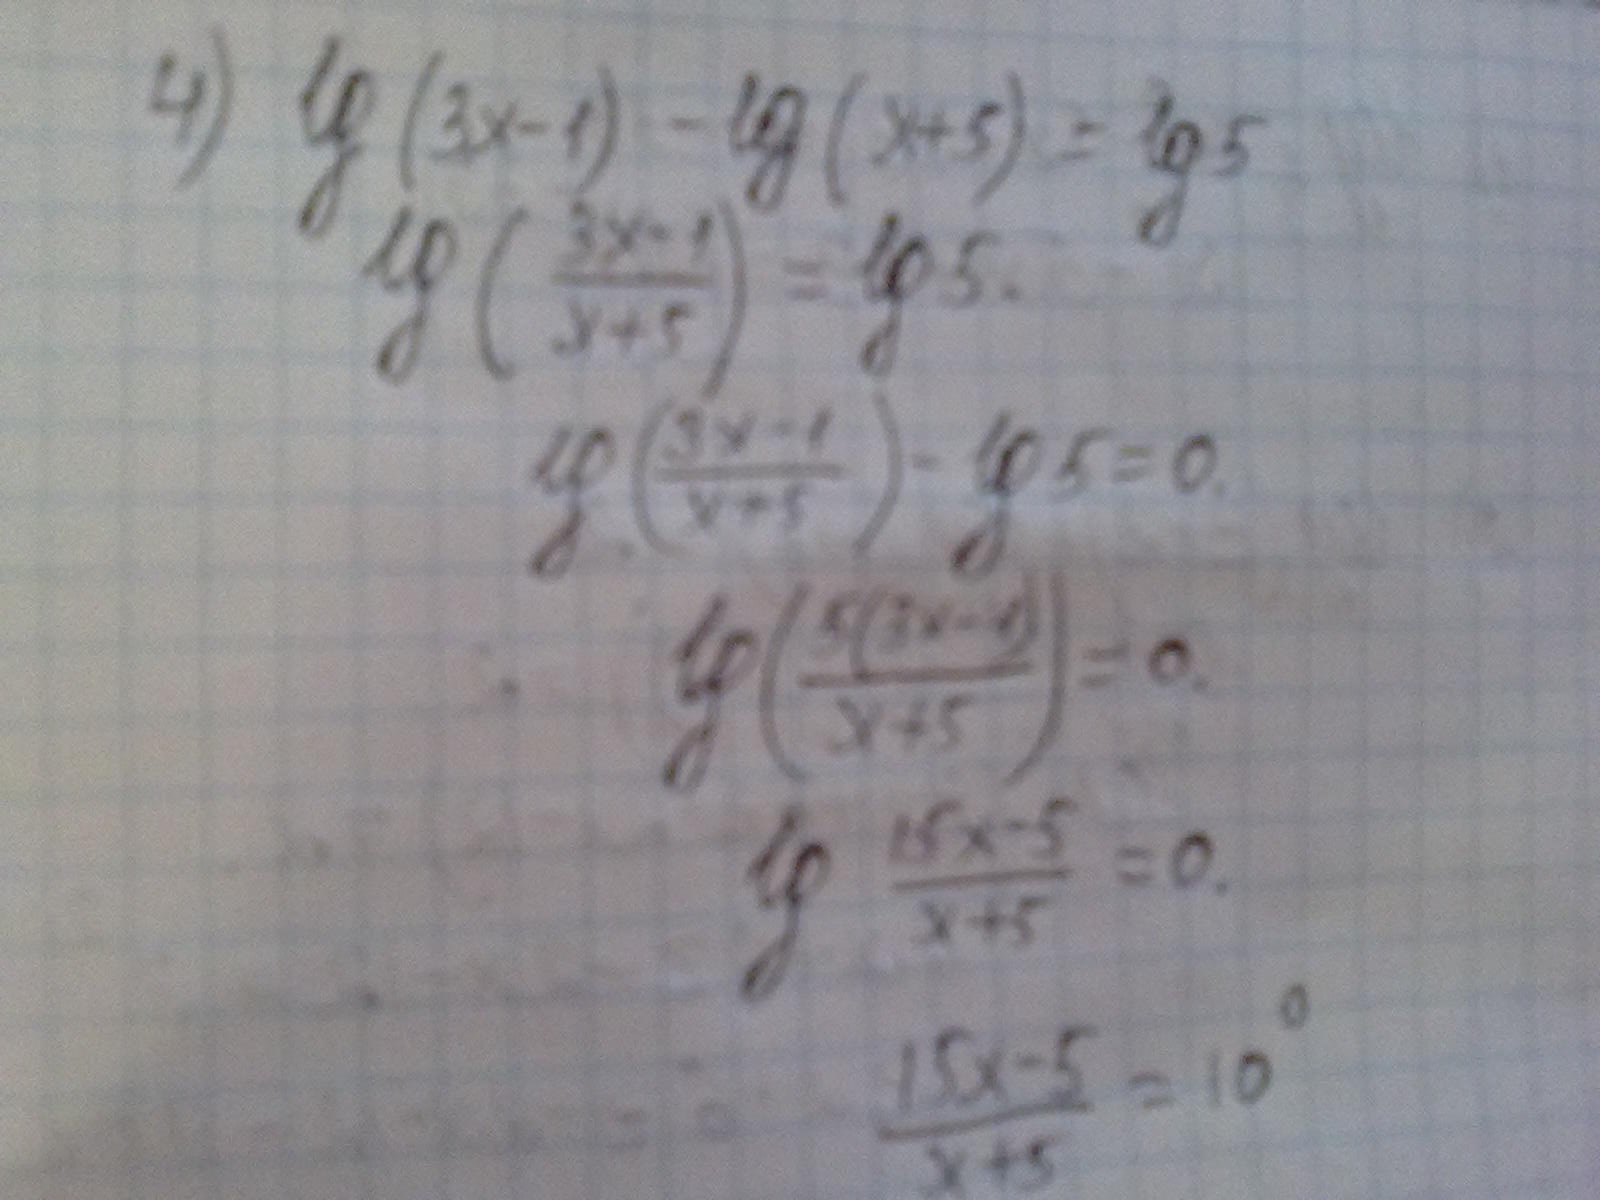 4) lg(3x-1) - lg(x+5) = lg5
lg((3x-1)/(x+5)) = lg5.
lg((3x-1)/(x+5)) - lg5=0.
lg(5(3x-1)/(x+5)) = 0.
lg (15x-5)/(x+5) = 0.
(15x-5)/(x+5) = 10^0